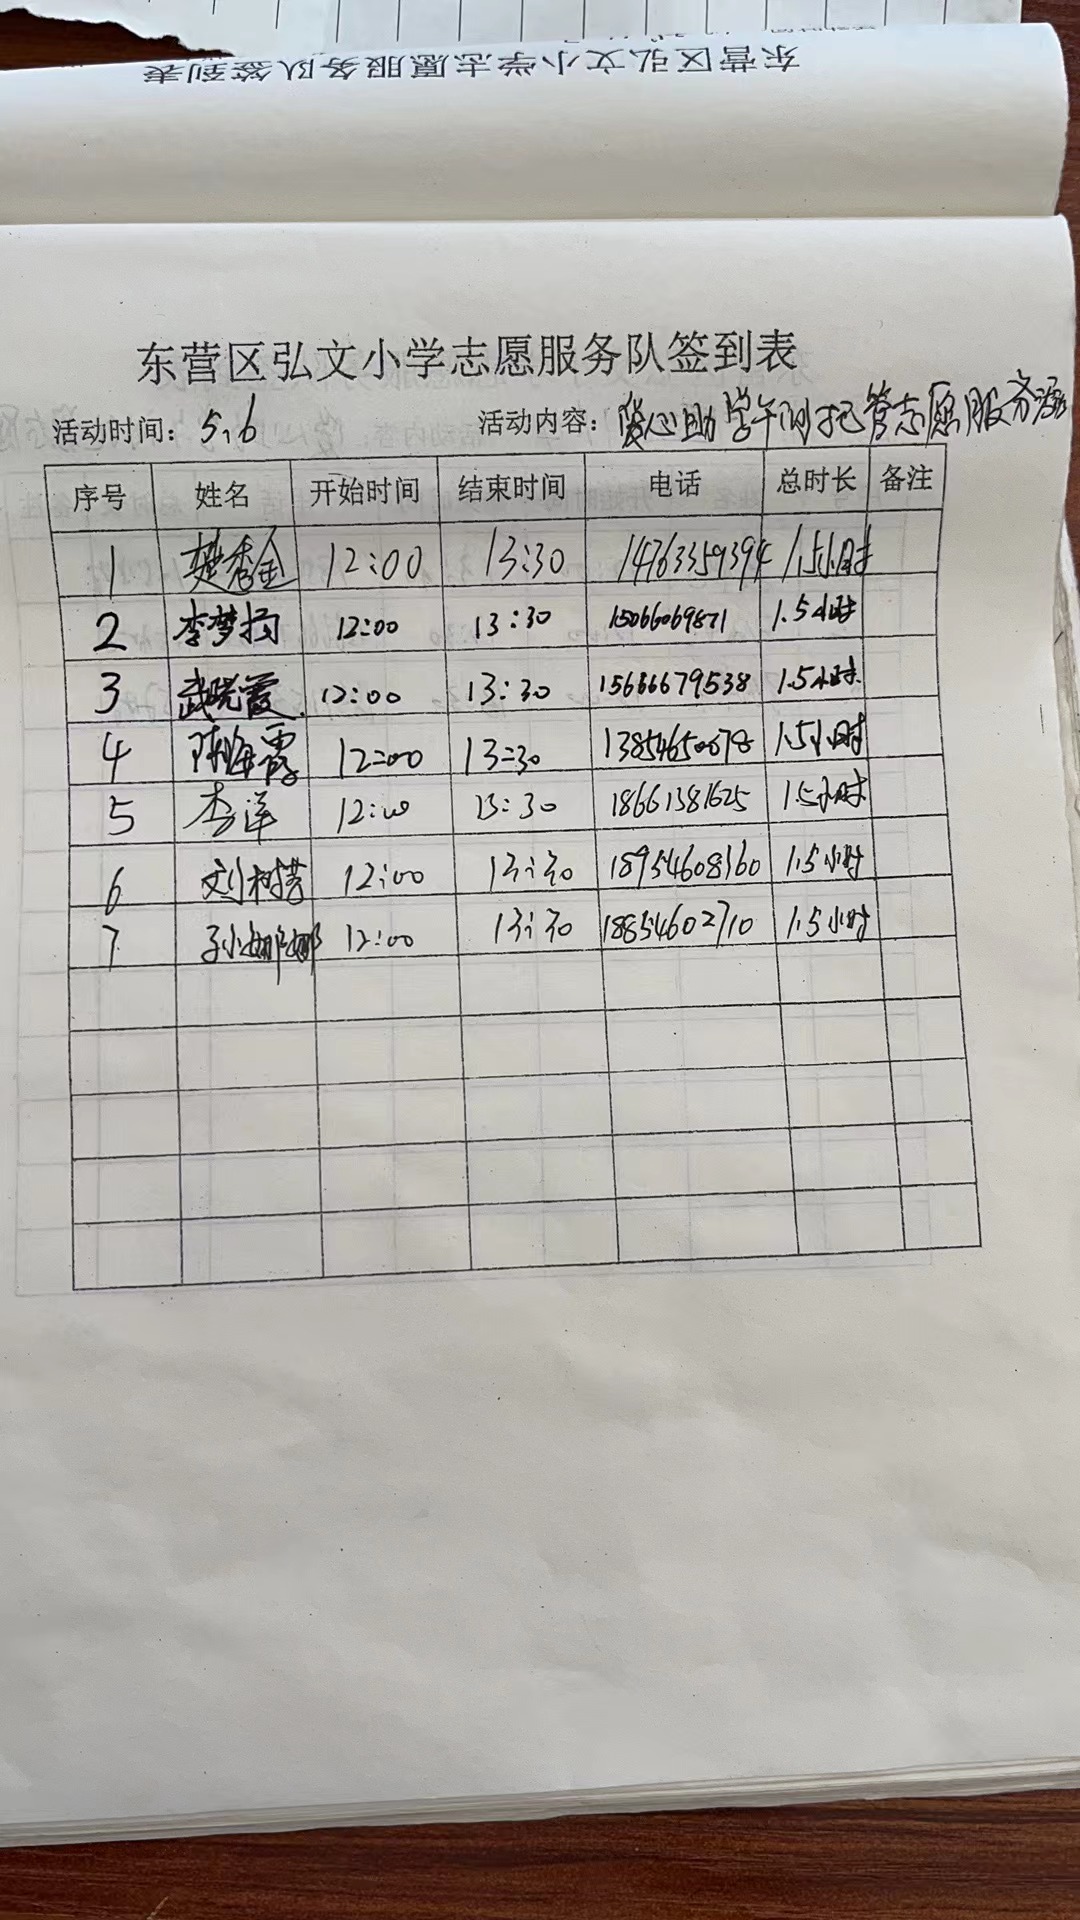 东营区弘文小学志愿服务队签到表
东营区弘文小学志愿服务队签到表
活动时间：5.6 活动内容：爱心助学午间托管志愿服务活动
序号 姓名 开始时间 结束时间 电话 总时长 备注
1 秀金 12:00 13:30 14763359394 1.5小时
2 李梦 12:00 13:30 15066069871 1.5小时
3 武晓霞 12:00 13:30 15666679538 1.5小时
4 陈海霞 12:00 13:30 13854650678 1.5小时
5 李洋 12:00 13:30 18661381625 1.5小时
6 刘树 12:00 13:30 18954608360 1.5小时
7 孙娜娜 12:00 13:30 18854602710 1.5小时